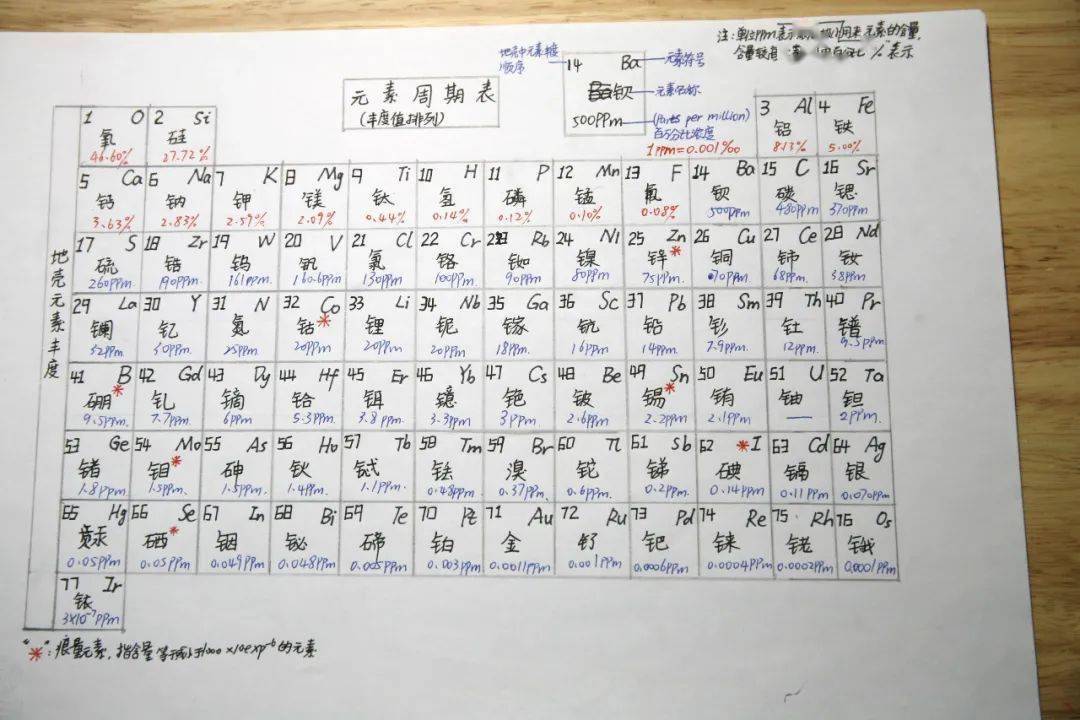 注:单位ppm表示 元素的含量,
含量较高 %表示
地壳中元素排
顺序
14 Ba
元素符号
钡
元素名称
500PPM
(Parts per million)
百万分比浓度
1ppm=0.001‰
元素周期表
(丰度值排列)
地壳元素丰度
1 O 2 Si 3 Al 4 Fe
氧 硅 铝 铁
46.60% 27.72% 8.13% 5.00%
5 Ca 6 Na 7 K 8 Mg 9 Ti 10 H 11 P 12 Mn 13 F 14 Ba 15 C 16 Sr
钙 钠 钾 镁 钛 氢 磷 锰 氟 钡 碳 锶
3.63% 2.83% 2.59% 2.09% 0.44% 0.14% 0.12% 0.10% 0.08% 500ppm 480ppm 370ppm
17 S 18 Zr 19 W 20 V 21 Cl 22 Cr 23 Rb 24 Ni 25 Zn 26 Cu 27 Ce 28 Nd
硫 锆 钨 钒 氯 铬 铷 镍 锌* 铜 铈 钕
260ppm 190ppm 161ppm 160.6ppm 130ppm 100ppm 90ppm 80ppm 75ppm 70ppm 68ppm 38ppm
29 La 30 Y 31 N 32 Co 33 Li 34 Nb 35 Ga 36 Sc 37 Pb 38 Sm 39 Th 40 Pr
镧 钇 氮 钴* 锂 铌 镓 钪 铅 钐 钍 镨
32ppm 30ppm 25ppm 20ppm 20ppm 20ppm 18ppm 16ppm 14ppm 7.9ppm 12ppm 9.5ppm
41 B 42 Gd 43 Dy 44 Hf 45 Er 46 Yb 47 Cs 48 Be 49 Sn 50 Eu 51 U 52 Ta
硼* 钆 镝 铪 铒 镱 铯 铍 锡* 铕 铀 钽
9.5ppm 7.7ppm 6ppm 5.3ppm 3.8ppm 3.3ppm 3ppm 2.6ppm 2.2ppm 2.1ppm — 2ppm
53 Ge 54 Mo 55 As 56 Ho 57 Tb 58 Tm 59 Br 60 Tl 61 Sb 62 *I 63 Cd 64 Ag
锗 钼* 砷 钬 铽 铥 溴 铊 锑 碘 镉 银
1.8ppm 1.5ppm. 1.5ppm. 1.4ppm. 1.1ppm. 0.48ppm. 0.37ppm. 0.6ppm. 0.2ppm. 0.14ppm 0.11ppm 0.070ppm
65 Hg 66 Se 67 In 68 Bi 69 Te 70 Pt 71 Au 72 Ru 73 Pd 74 Re 75 Rh 76 Os
汞 硒* 铟 铋 碲 铂 金 钌 钯 铼 铑 锇
0.05ppm 0.05ppm 0.049ppm 0.048ppm 0.005ppm 0.003ppm 0.0011ppm 0.001ppm 0.0006ppm 0.0004ppm 0.0002ppm 0.0001ppm
77 Ir
铱
3×10⁻⁷ppm
"*":痕量元素,指含量等于或小于1000×10exp⁻⁶的元素